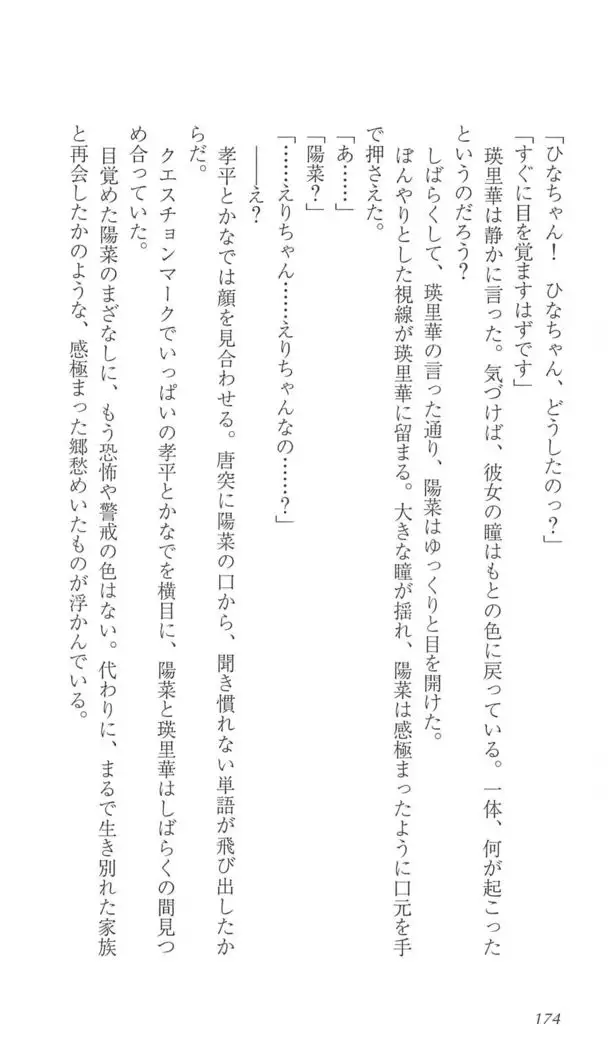 「ひなちゃん！　ひなちゃん、どうしたのっ？」
「すぐに目を覚ますはずです」
　瑛里華は静かに言った。気づけば、彼女の瞳はもとの色に戻っている。一体、何が起こった
というのだろう？
　しばらくして、瑛里華の言った通り、陽菜はゆっくりと目を開けた。
　ぼんやりとした視線が瑛里華に留まる。大きな瞳が揺れ、陽菜は感極まったように口元を手
で押さえた。
「あ……」
「陽菜？」
「……えりちゃん……えりちゃんなの……？」
　――え？
　孝平とかなでは顔を見合わせる。唐突に陽菜の口から、聞き慣れない単語が飛び出したか
らだ。
　クエスチョンマークでいっぱいの孝平とかなでを横目に、陽菜と瑛里華はしばらくの間見つ
め合っていた。
　目覚めた陽菜のまなざしに、もう恐怖や警戒の色はない。代わりに、まるで生き別れた家族
と再会したかのような、感極まった郷愁めいたものが浮かんでいる。
174